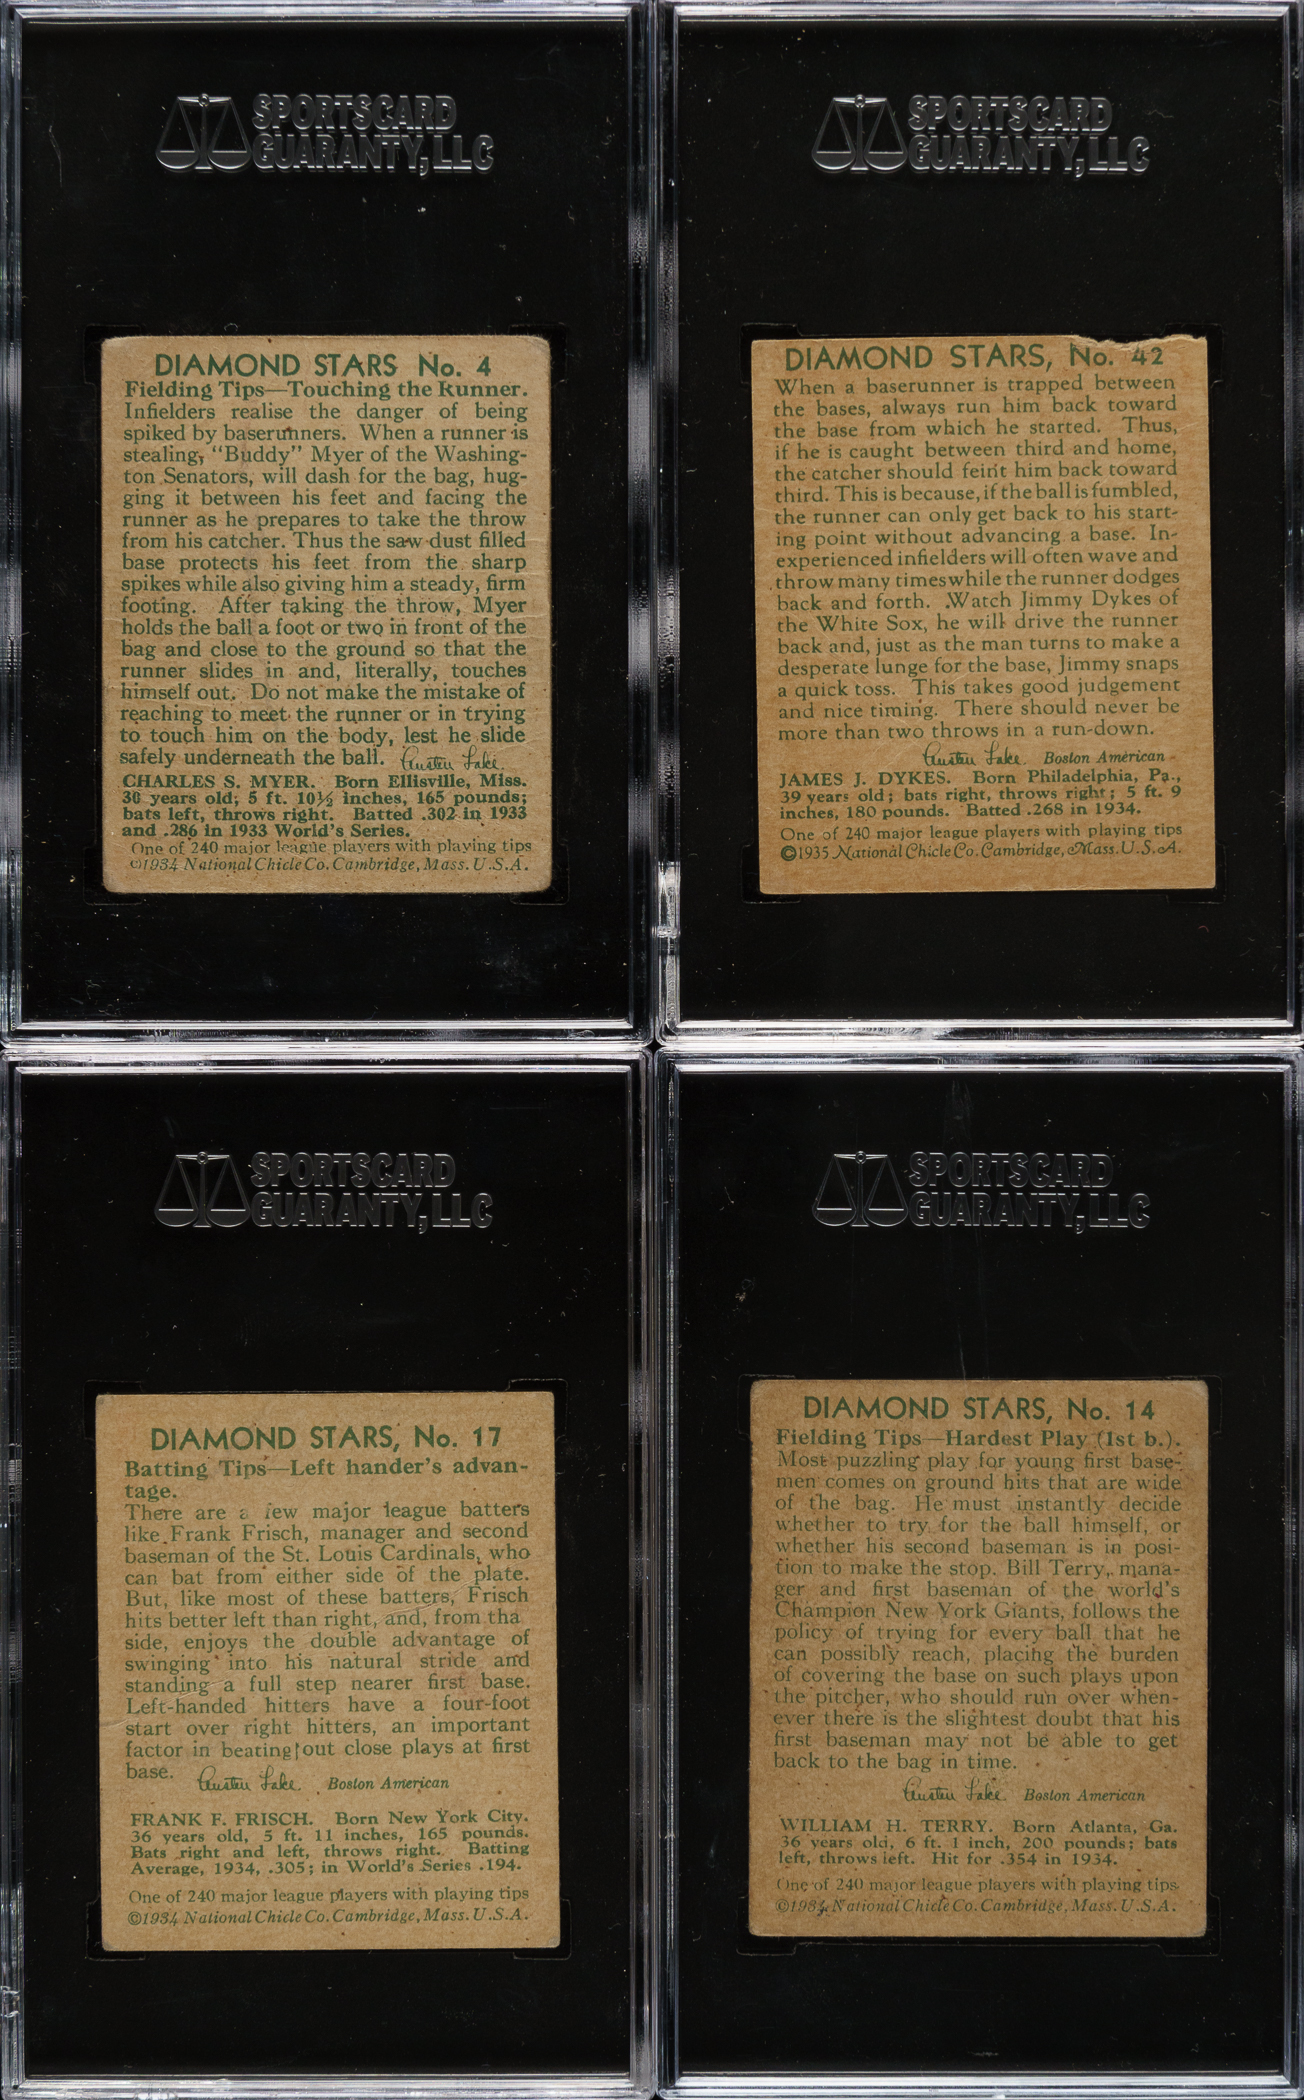 SPORTSCARD
GUARANTY, LLC
DIAMOND STARS No. 4
Fielding Tips—Touching the Runner.
Infielders realise the danger of being
spiked by baserunners. When a runner is
stealing, "Buddy" Myer of the Washing-
ton Senators, will dash for the bag, hug-
ging it between his feet and facing the
runner as he prepares to take the throw
from his catcher. Thus the saw dust filled
base protects his feet from the sharp
spikes while also giving him a steady, firm
footing. After taking the throw, Myer
holds the ball a foot or two in front of the
bag and close to the ground so that the
runner slides in and, literally, touches
himself out. Do not make the mistake of
reaching to meet the runner or in trying
to touch him on the body, lest he slide
safely underneath the ball. Austen Lake.
CHARLES S. MYER. Born Ellisville, Miss.
30 years old; 5 ft. 10½ inches, 165 pounds;
bats left, throws right. Batted .302 in 1933
and .286 in 1933 World's Series.
One of 240 major league players with playing tips
©1934 National Chicle Co. Cambridge, Mass. U.S.A.
SPORTSCARD
GUARANTY, LLC
DIAMOND STARS, No. 42
When a baserunner is trapped between
the bases, always run him back toward
the base from which he started. Thus,
if he is caught between third and home,
the catcher should feint him back toward
third. This is because, if the ball is fumbled,
the runner can only get back to his start-
ing point without advancing a base. In-
experienced infielders will often wave and
throw many times while the runner dodges
back and forth. Watch Jimmy Dykes of
the White Sox, he will drive the runner
back and, just as the man turns to make a
desperate lunge for the base, Jimmy snaps
a quick toss. This takes good judgement
and nice timing. There should never be
more than two throws in a run-down.
Austen Lake. Boston American
JAMES J. DYKES. Born Philadelphia, Pa.,
39 years old; bats right, throws right; 5 ft. 9
inches, 180 pounds. Batted .268 in 1934.
One of 240 major league players with playing tips
©1935 National Chicle Co. Cambridge, Mass. U.S.A.
SPORTSCARD
GUARANTY, LLC
DIAMOND STARS, No. 17
Batting Tips—Left hander's advan-
tage.
There are a few major league batters
like Frank Frisch, manager and second
baseman of the St. Louis Cardinals, who
can bat from either side of the plate.
But, like most of these batters, Frisch
hits better left than right, and, from tha
side, enjoys the double advantage of
swinging into his natural stride and
standing a full step nearer first base.
Left-handed hitters have a four-foot
start over right hitters, an important
factor in beating out close plays at first
base. Austen Lake. Boston American
FRANK F. FRISCH. Born New York City.
36 years old, 5 ft. 11 inches, 165 pounds.
Bats right and left, throws right. Batting
Average, 1934, .305; in World's Series .194.
One of 240 major league players with playing tips
©1934 National Chicle Co. Cambridge, Mass. U.S.A.
SPORTSCARD
GUARANTY, LLC
DIAMOND STARS, No. 14
Fielding Tips—Hardest Play (1st b.).
Most puzzling play for young first base-
men comes on ground hits that are wide
of the bag. He must instantly decide
whether to try for the ball himself, or
whether his second baseman is in posi-
tion to make the stop. Bill Terry, mana-
ger and first baseman of the world's
Champion New York Giants, follows the
policy of trying for every ball that he
can possibly reach, placing the burden
of covering the base on such plays upon
the pitcher, who should run over when-
ever there is the slightest doubt that his
first baseman may not be able to get
back to the bag in time.
Austen Lake. Boston American
WILLIAM H. TERRY. Born Atlanta, Ga.
36 years old, 6 ft. 1 inch, 200 pounds; bats
left, throws left. Hit for .354 in 1934.
One of 240 major league players with playing tips
©1934 National Chicle Co. Cambridge, Mass. U.S.A.